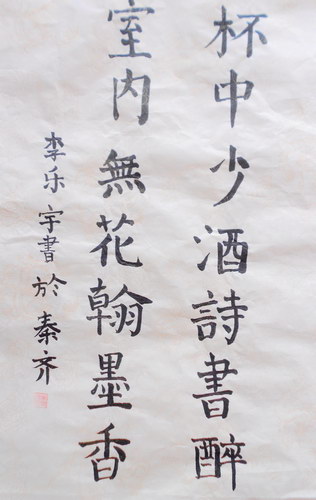 杯中少酒詩書醉
室内無花翰墨香
李乐宇書於秦齐